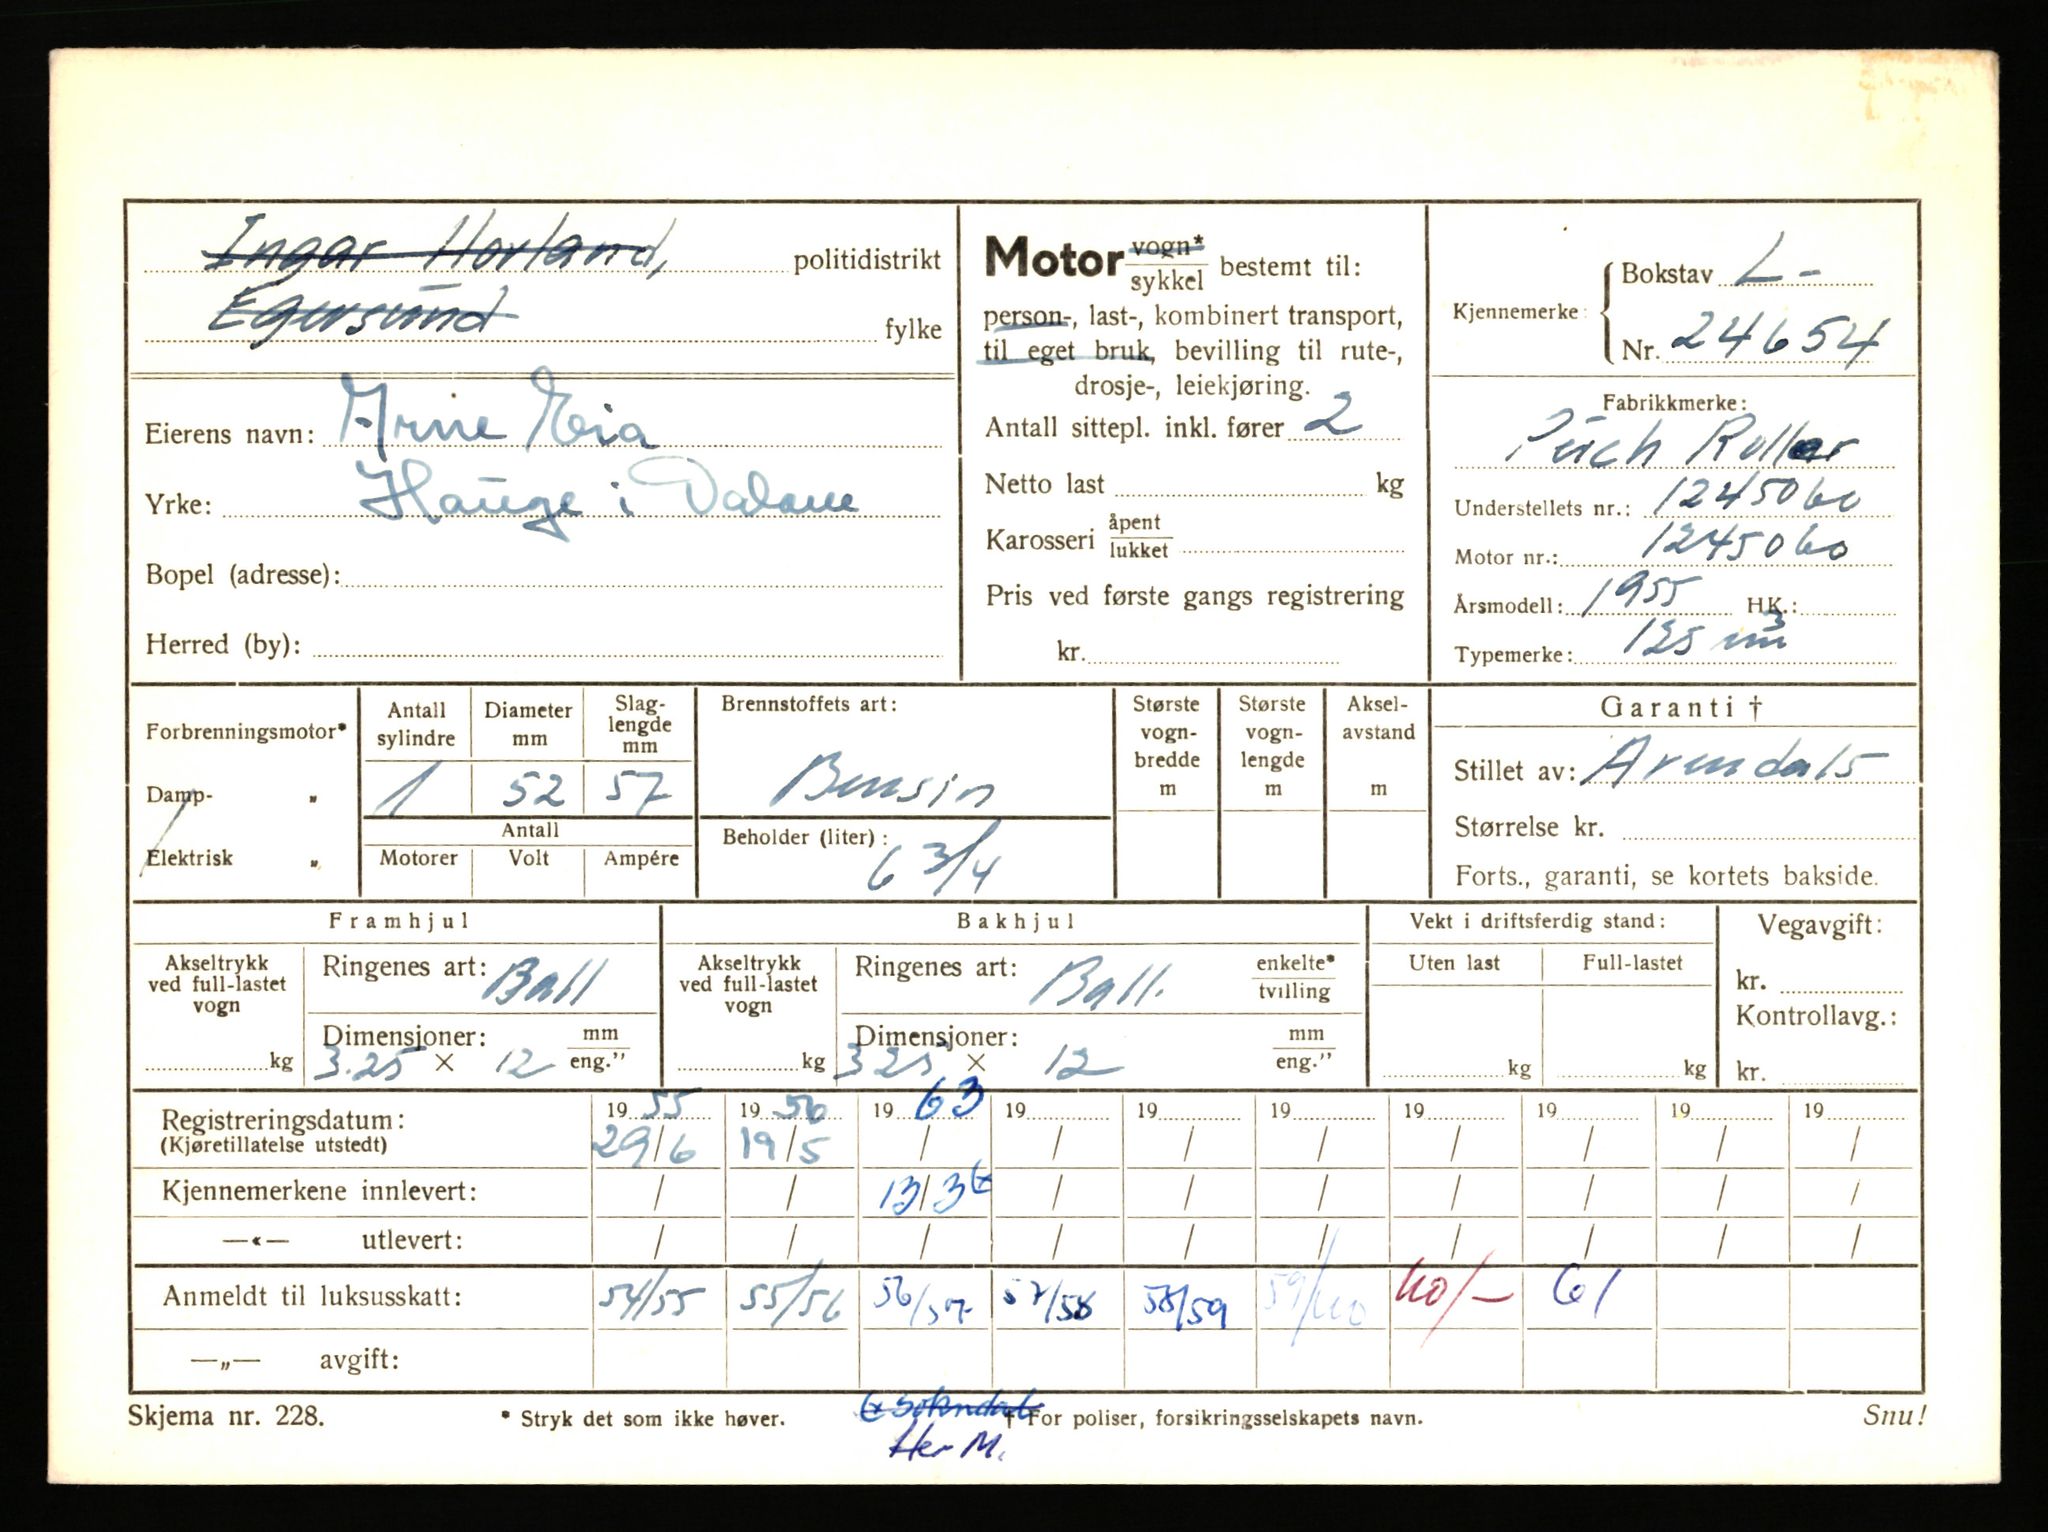 Ingar Hovland, politidistrikt
Egersund fylke
Eierens navn: Arne Eia
Yrke: Hauge i Dalane
Bopel (adresse):
Herred (by):
Motor vogn*
sykkel bestemt til:
person-, last-, kombinert transport,
til eget bruk, bevilling til rute-,
drosje-, leiekjøring.
Antall sittepl. inkl. fører 2
Netto last kg
Karosseri åpent
lukket
Pris ved første gangs registrering
kr.
Kjennemerke: Bokstav L-
Nr. 24654
Fabrikkmerke:
Puch Roller
Understellets nr.: 1245060
Motor nr.: 1245060
Årsmodell: 1955 HK.:
Typemerke: 125 m³
Forbrenningsmotor*
Damp- „
Elektrisk „
Antall sylindre 1
Diameter mm 52
Slag-lengde mm 57
Antall
Motorer Volt Ampére
Brennstoffets art:
Bensin
Beholder (liter):
6 3/4
Største vogn-bredde m
Største vogn-lengde m
Aksel-avstand m
Garanti †
Stillet av: Arendals
Størrelse kr.
Forts., garanti, se kortets bakside.
Framhjul
Akseltrykk ved full-lastet vogn kg
Ringenes art: Ball
Dimensjoner: mm
3.25 × 12 eng.”
Bakhjul
Akseltrykk ved full-lastet vogn kg
Ringenes art: Ball. enkelte*
tvilling
Dimensjoner: mm
325 × 12 eng.”
Vekt i driftsferdig stand:
Uten last Full-lastet
kg kg
Vegavgift:
kr.
Kontrollavg.:
kr.
Registreringsdatum: 19 55 19 56 19 63 19 19 19 19 19 19 19
(Kjøretillatelse utstedt) 29/6 19/5 / / / / / / / /
Kjennemerkene innlevert: / / 13/3 / / / / / / /
—«— utlevert: / / / / / / / / / /
Anmeldt til luksusskatt: 54/55 55/56 56/57 57/58 58/59 59/60 60/— 61
—„— avgift:
Skjema nr. 228. * Stryk det som ikke høver. † For poliser, forsikringsselskapets navn. Snu!
Sokndal
Her M.